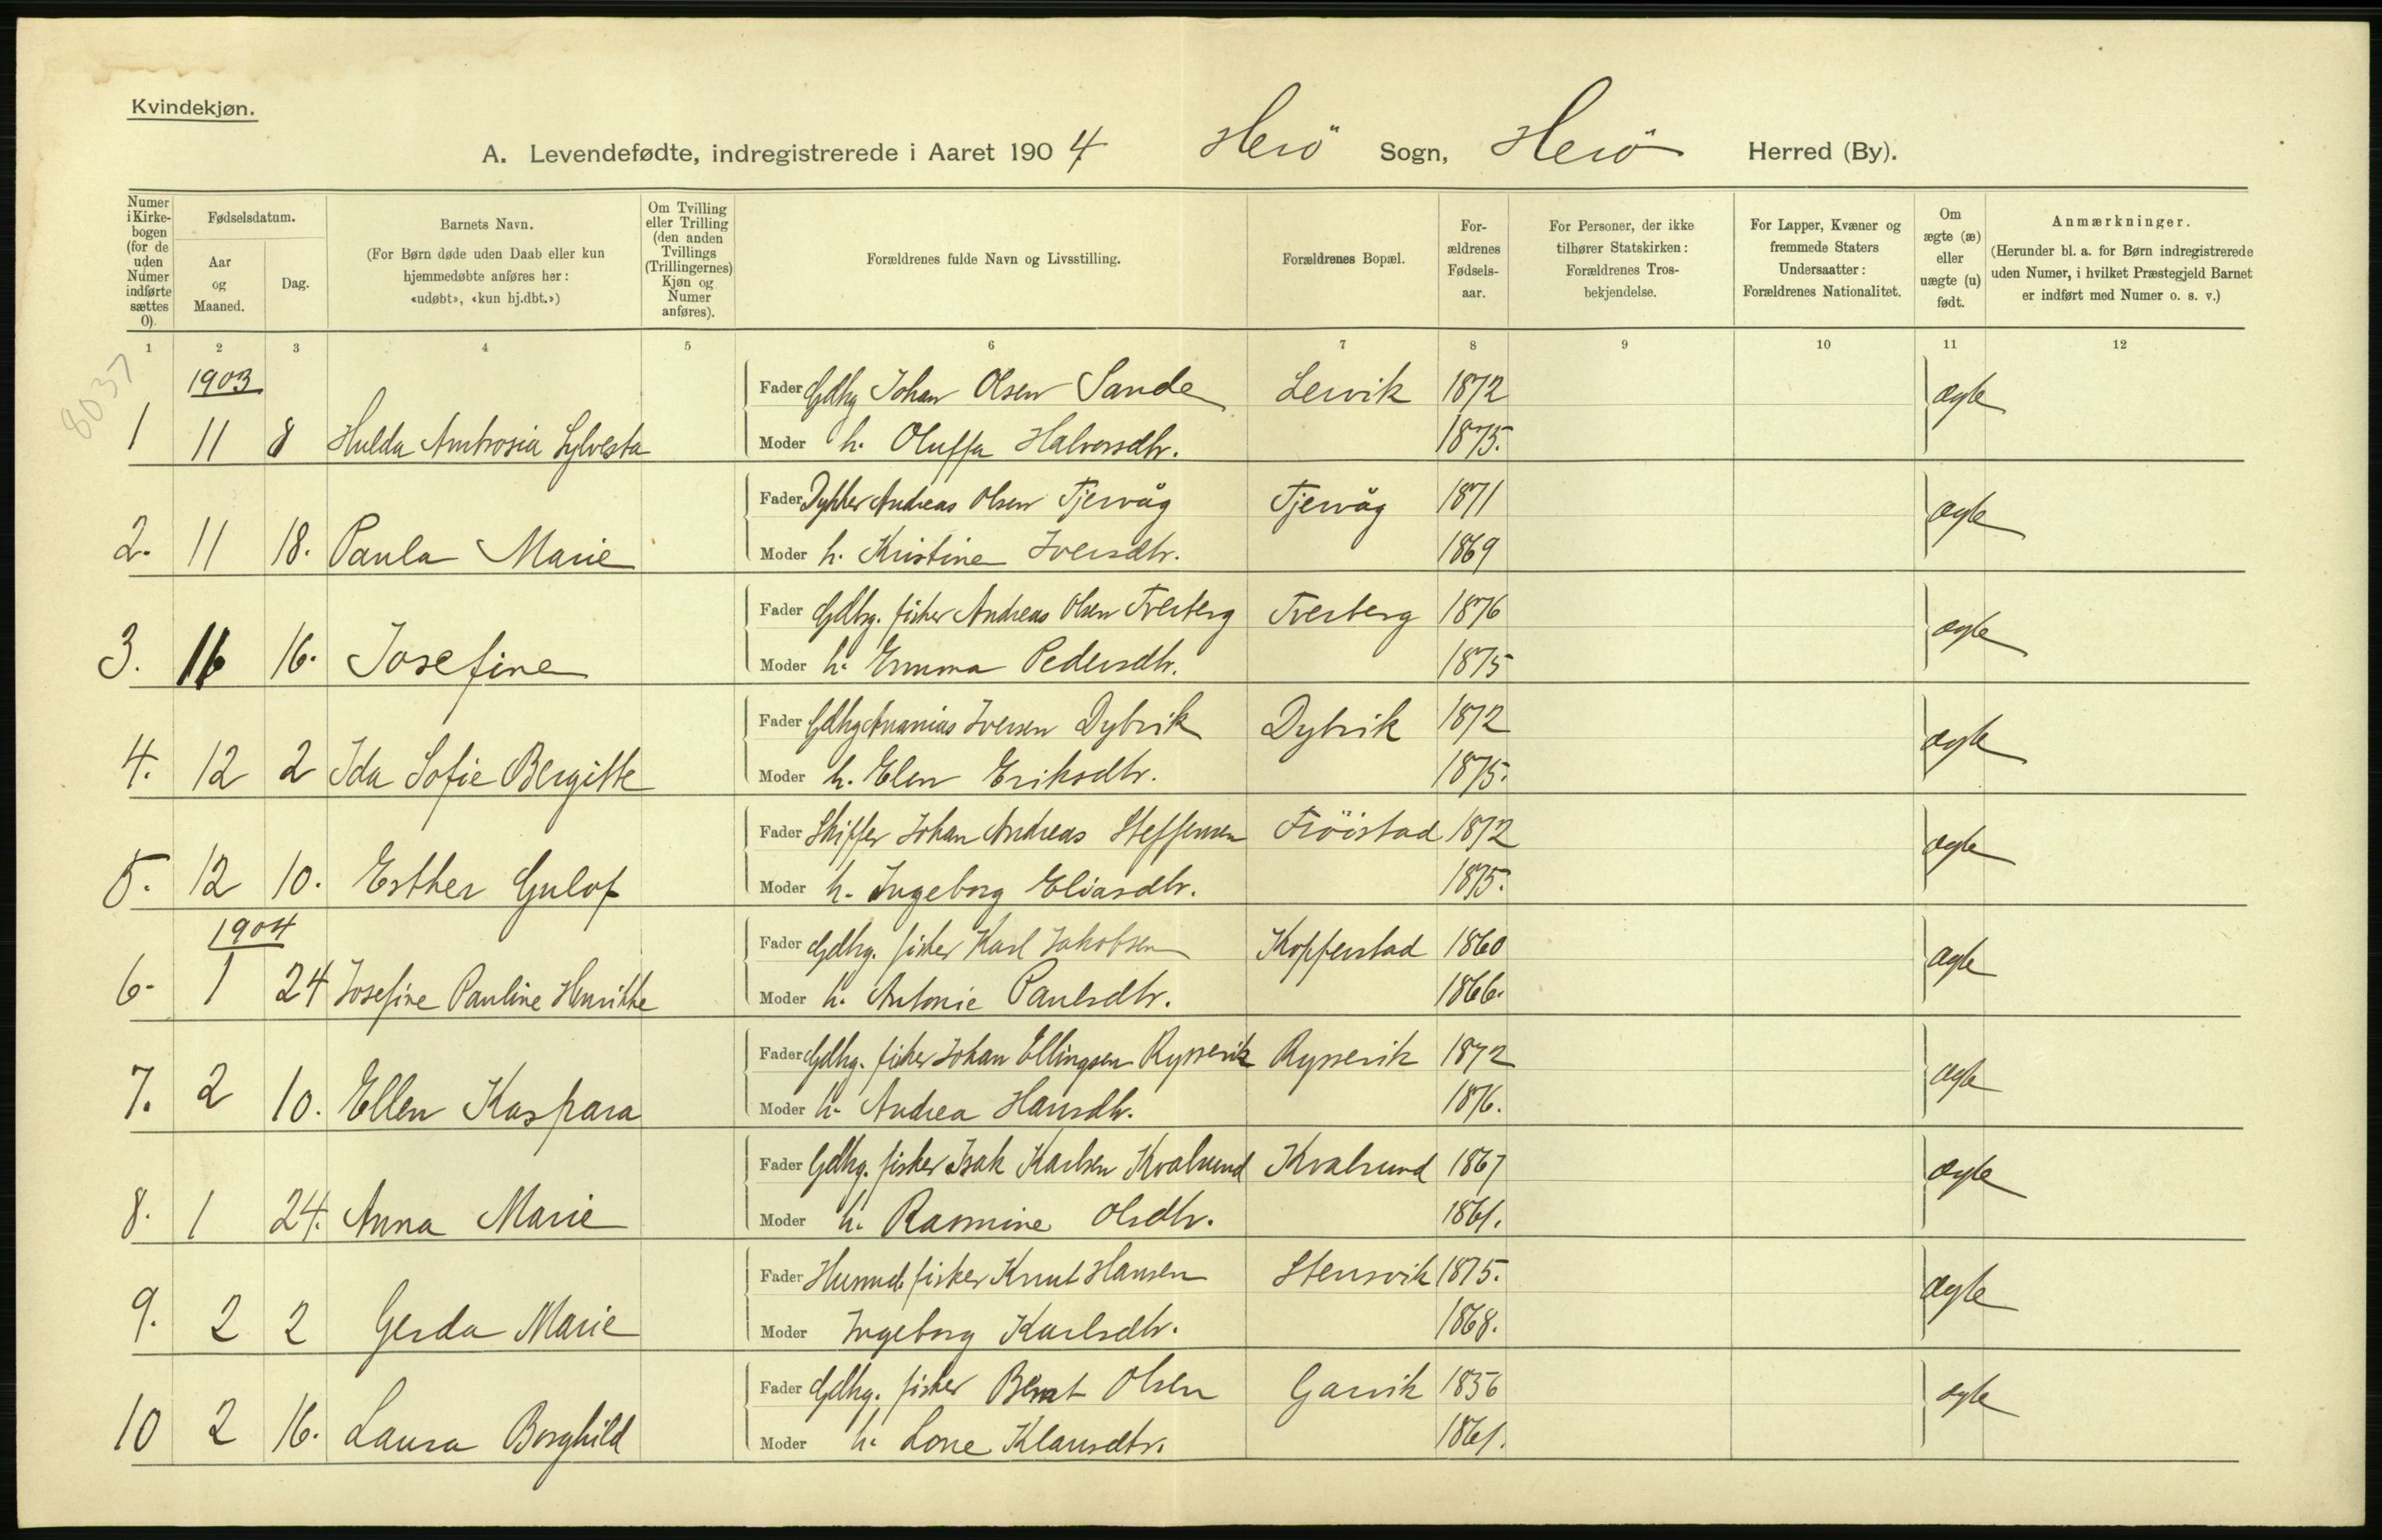 Kvindekjøn.
A. Levendefødte, indregistrerede i Aaret 1904 Herö Sogn, Herö Herred (By).
Numer i Kirkebogen (for de uden Numer indførte sættes 0).
Fødselsdatum.
Aar og Maaned.
Dag.
Barnets Navn.
(For Børn døde uden Daab eller kun hjemmedøbte anføres her: «udøbt», «kun hj.dbt.»)
Om Tvilling eller Trilling (den anden Tvillings (Trillingernes) Kjøn og Numer anføres).
Forældrenes fulde Navn og Livsstilling.
Forældrenes Bopæl.
Forældrenes Fødselsaar.
For Personer, der ikke tilhører Statskirken: Forældrenes Trosbekjendelse.
For Lapper, Kvæner og fremmede Staters Undersaatter: Forældrenes Nationalitet.
Om ægte (æ) eller uægte (u) født.
Anmærkninger.
(Herunder bl. a. for Børn indregistrerede uden Numer, i hvilket Præstegjeld Barnet er indført med Numer o. s. v.)
1 2 3 4 5 6 7 8 9 10 11 12
8037
1903
Fader Gdbg Johan Olsen Sande Leivik 1872 ægte
1 11 8 Hulda Ambrosia Sylvesta Moder h. Oluffa Halvorsdtr. 1875.
Fader Dykker Andreas Olsen Tjervåg Tjervåg 1871 ægte
2. 11 18. Paula Marie Moder h. Kristine Iversdtr. 1869
Fader Gdbrg. fisker Andreas Olsen Tverberg Tverberg 1876 ægte
3. 11 16. Josefine Moder h. Emma Pedersdtr. 1875
Fader Gdbg Ananias Iversen Dybvik Dybvik 1872 ægte
4. 12 2 Ida Sofie Bergitte Moder h. Elen Eriksdtr. 1875.
Fader Skipper Johan Andreas Steffensen Fröistad 1872 ægte
5. 12 10. Esther Gulof Moder h. Ingeborg Eliasdtr. 1875.
1904
Fader Gdbrg. fisker Karl Jakobsen Kopperstad 1860 ægte
6. 1 24 Josefine Pauline Henrikke Moder h. Antonie Paulsdtr. 1866.
Fader Gdbg. fisker Johan Ellingsen Rypservik Rypservik 1872 ægte
7. 2 10. Ellen Kaspara Moder h. Andrea Hansdtr. 1876.
Fader Gdbrg. fisker Isak Karlsen Kvalsund Kvalsund 1867 ægte
8. 1 24. Anna Marie Moder h. Rasmine Olsdtr. 1861.
Fader Husmd. fisker Knut Hansen Stensvik 1875. ægte
9. 2 2 Gerda Marie Moder Ingeborg Karlsdtr. 1868.
Fader Gdbrg. fisker Bernt Olsen Garvik 1856 ægte
10 2 16. Laura Borghild Moder h. Lone Klausdtr. 1861.